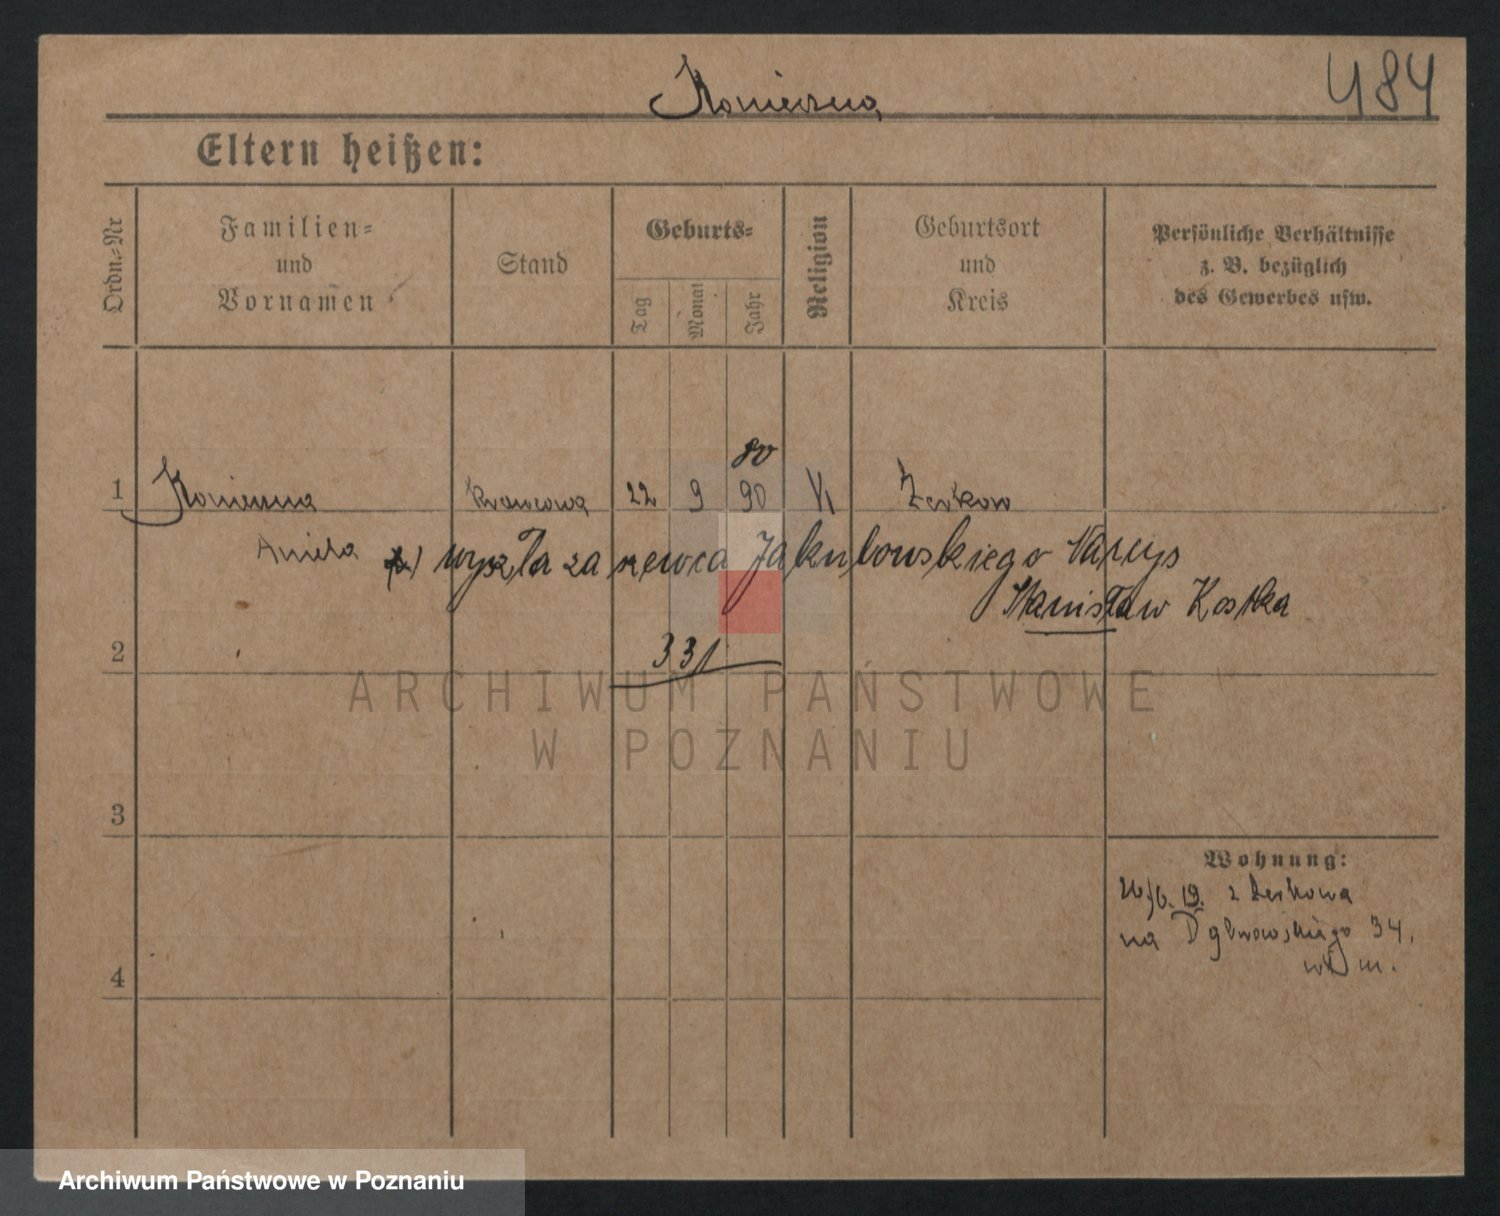 Konieczna
484
Eltern heißen:
Ordn.-Nr
Familien-
und
Vornamen
Stand
Geburts-
Tag
Monat
Jahr
Religion
Geburtsort
und
Kreis
Persönliche Verhältnisse
z. B. bezüglich
des Gewerbes usw.
80
1 Konieczna krawcowa 22 9 90 Żerków
Aniela wyszła za szewca Jakubowskiego Narcys
Stanisław Kostka
2 331
ARCHIWUM PAŃSTWOWE
W POZNANIU
3
Wohnung:
26/6. 19. z Żerkowa
na Dąbrowskiego 34.
4
Archiwum Państwowe w Poznaniu